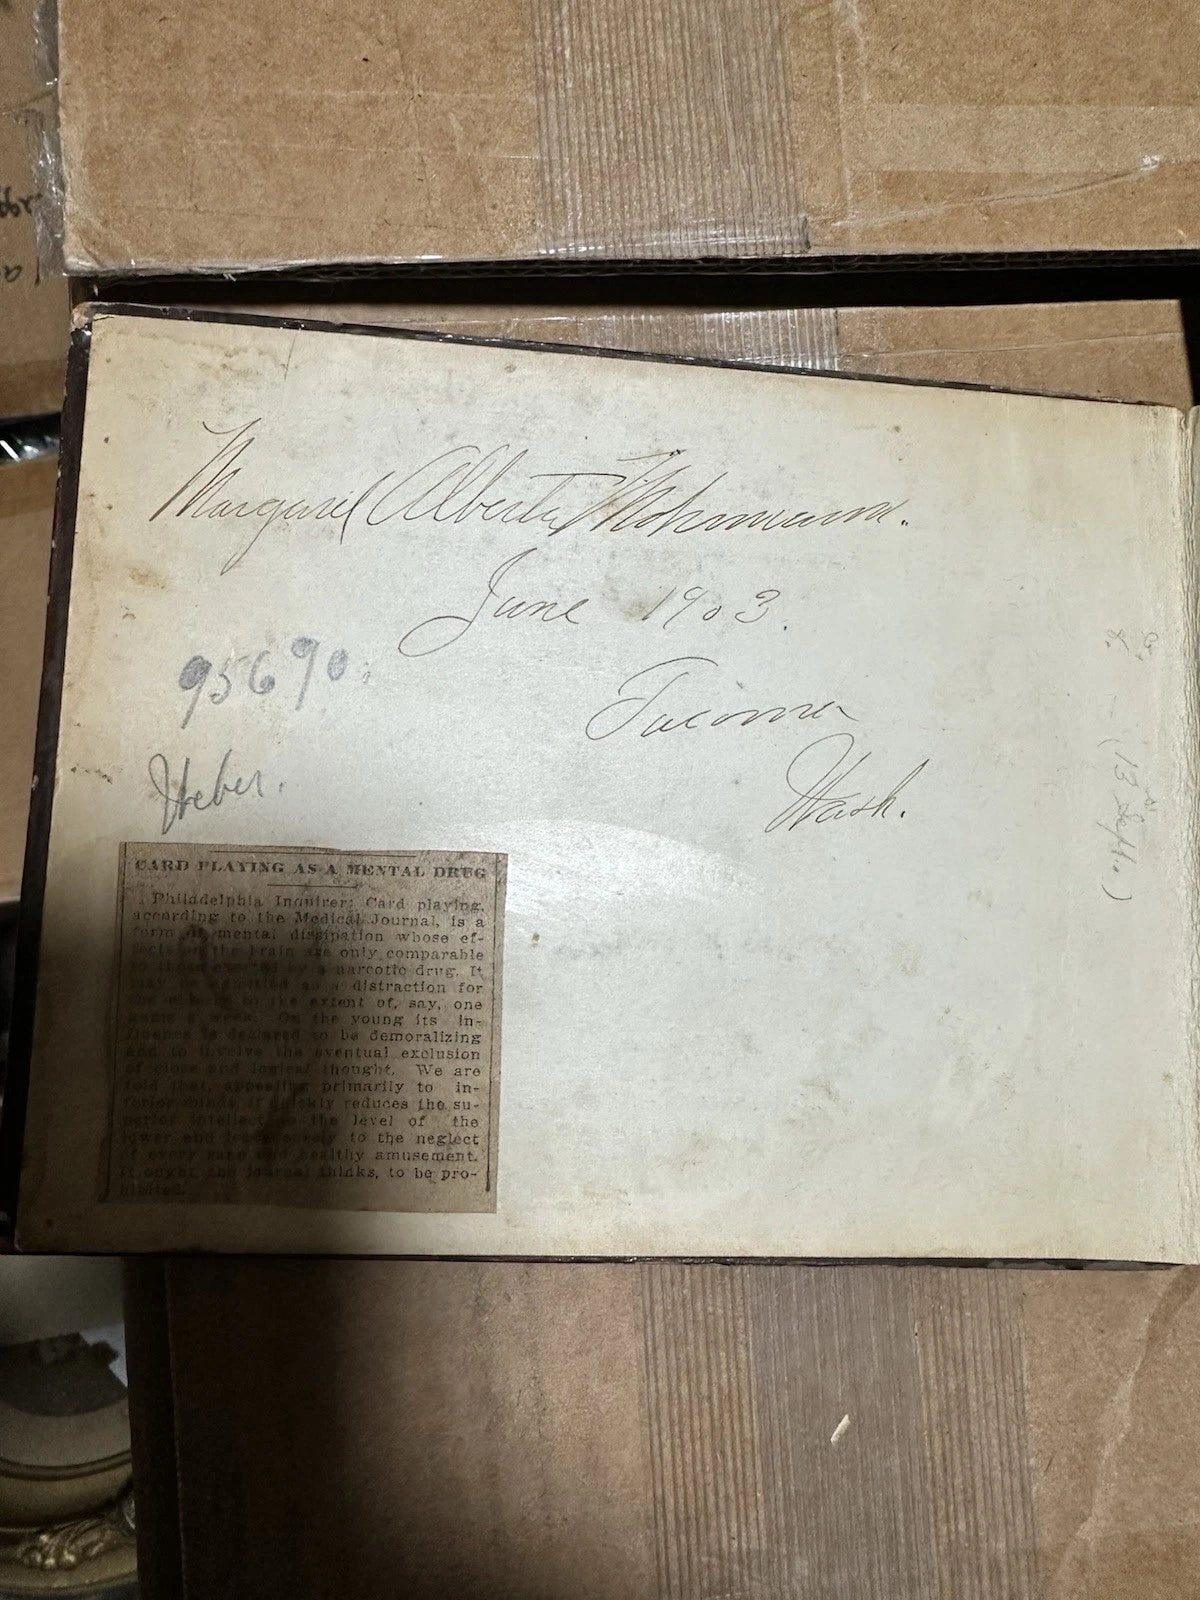 Margaret Alberta Mohrmann.
June 1903.
Tacoma
Wash.
95690.
Weber.
CARD PLAYING AS A MENTAL DRUG
Philadelphia Inquirer: Card playing,
according to the Medical Journal, is a
form of mental dissipation whose ef-
fects on the brain are only comparable
to those exerted by a narcotic drug. It
may be admitted as a distraction for
to the extent of, say, one
game a week. On the young its in-
fluence is declared to be demoralizing
and to involve the eventual exclusion
of close and logical thought. We are
told that, appealing primarily to in-
ferior minds, it quickly reduces the su-
perior intellect to the level of the
lower and leads surely to the neglect
of every sane and healthy amusement.
It ought, the journal thinks, to be pro-
hibited.